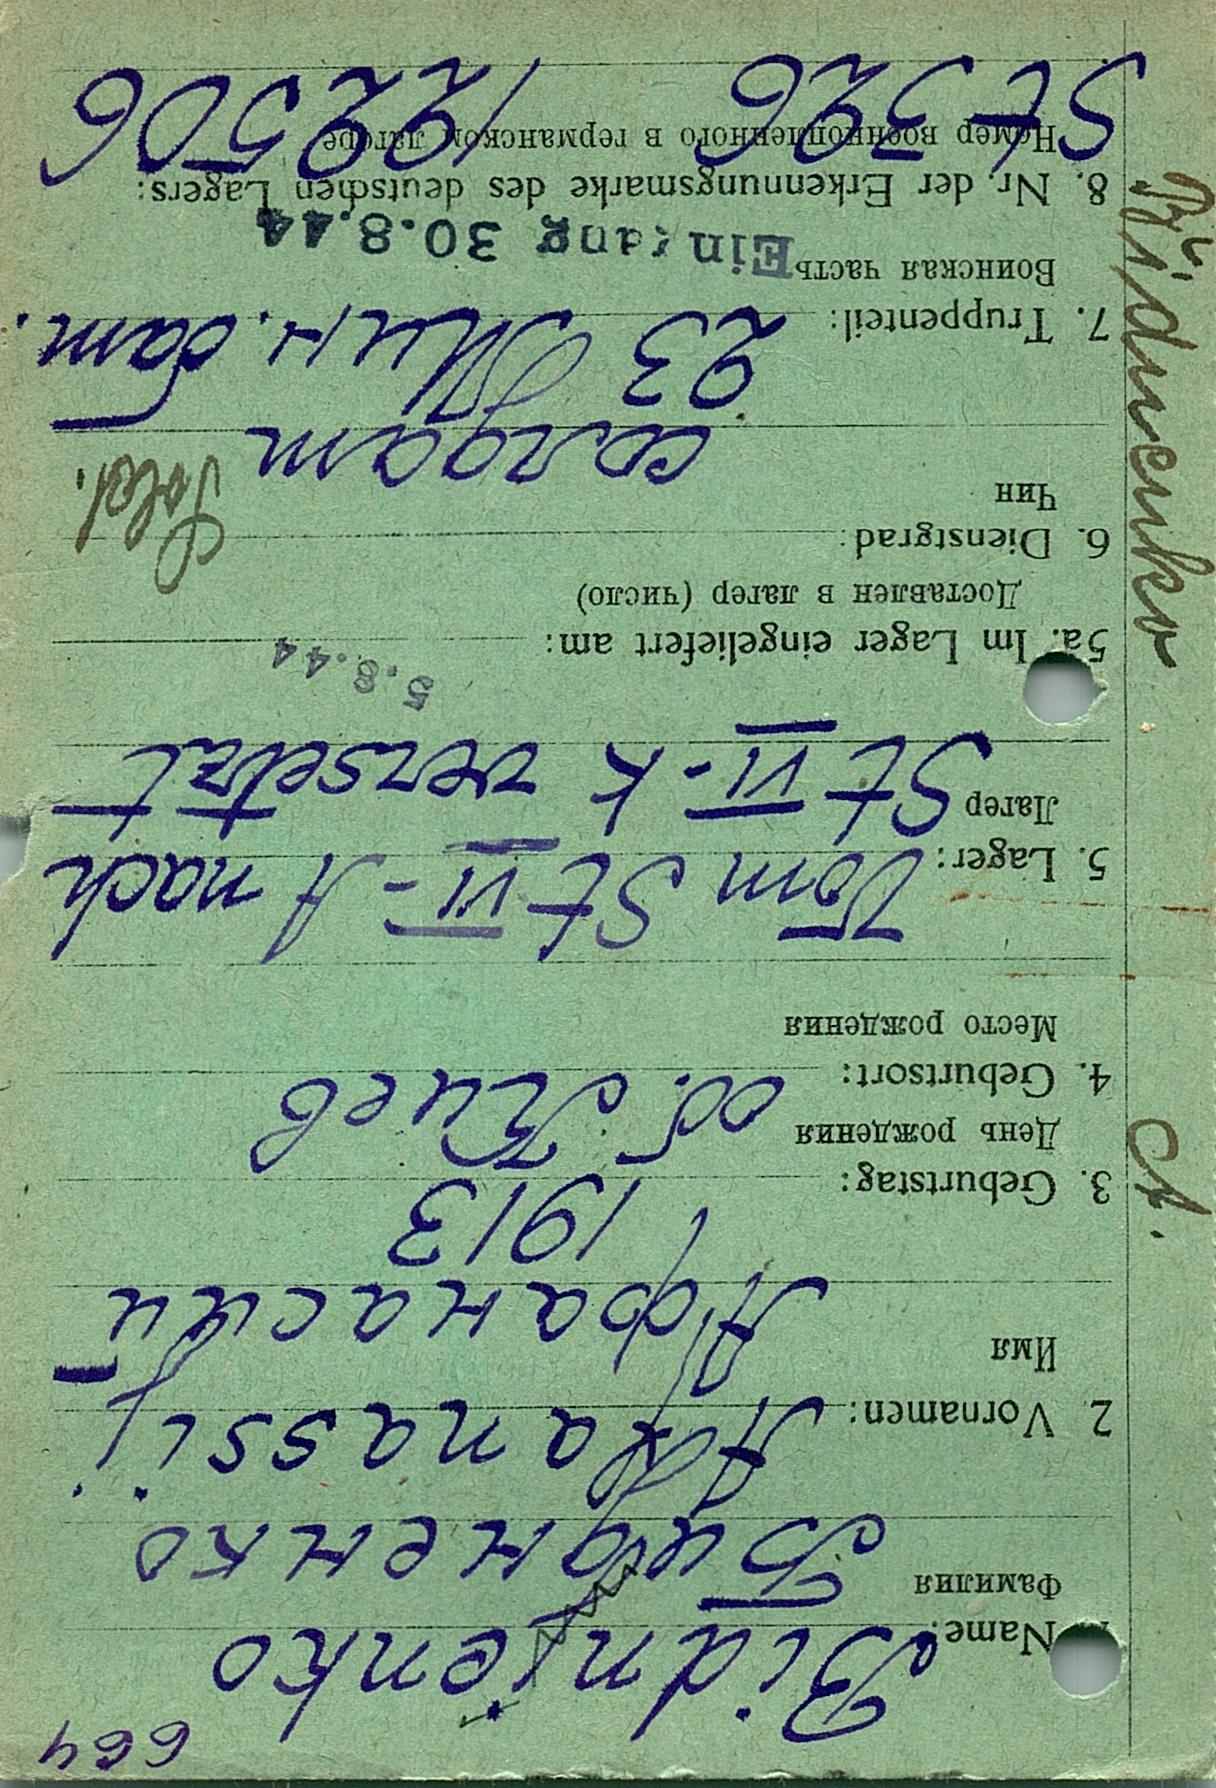 664
1. Name: Bidnienko
Фамилия Бидненко
2. Vornamen: Afanassij
Имя Афанасий
3. Geburtstag: 1913
День рождения
4. Geburtsort: об. Киев
Место рождения
5. Lager: Vom St VI-A nach
Лагер St VI-K versetzt
5.8.44
5a. Im Lager eingeliefert am:
Доставлен в лагер (число)
6. Dienstgrad: Sold.
Чин солдат
7. Truppenteil: 23 Мин. бат.
Воинская часть Eingang 30.8.44
8. Nr. der Erkennungsmarke des deutschen Lagers:
Номер военнопленного в германском лагере
St 326 122506
A.